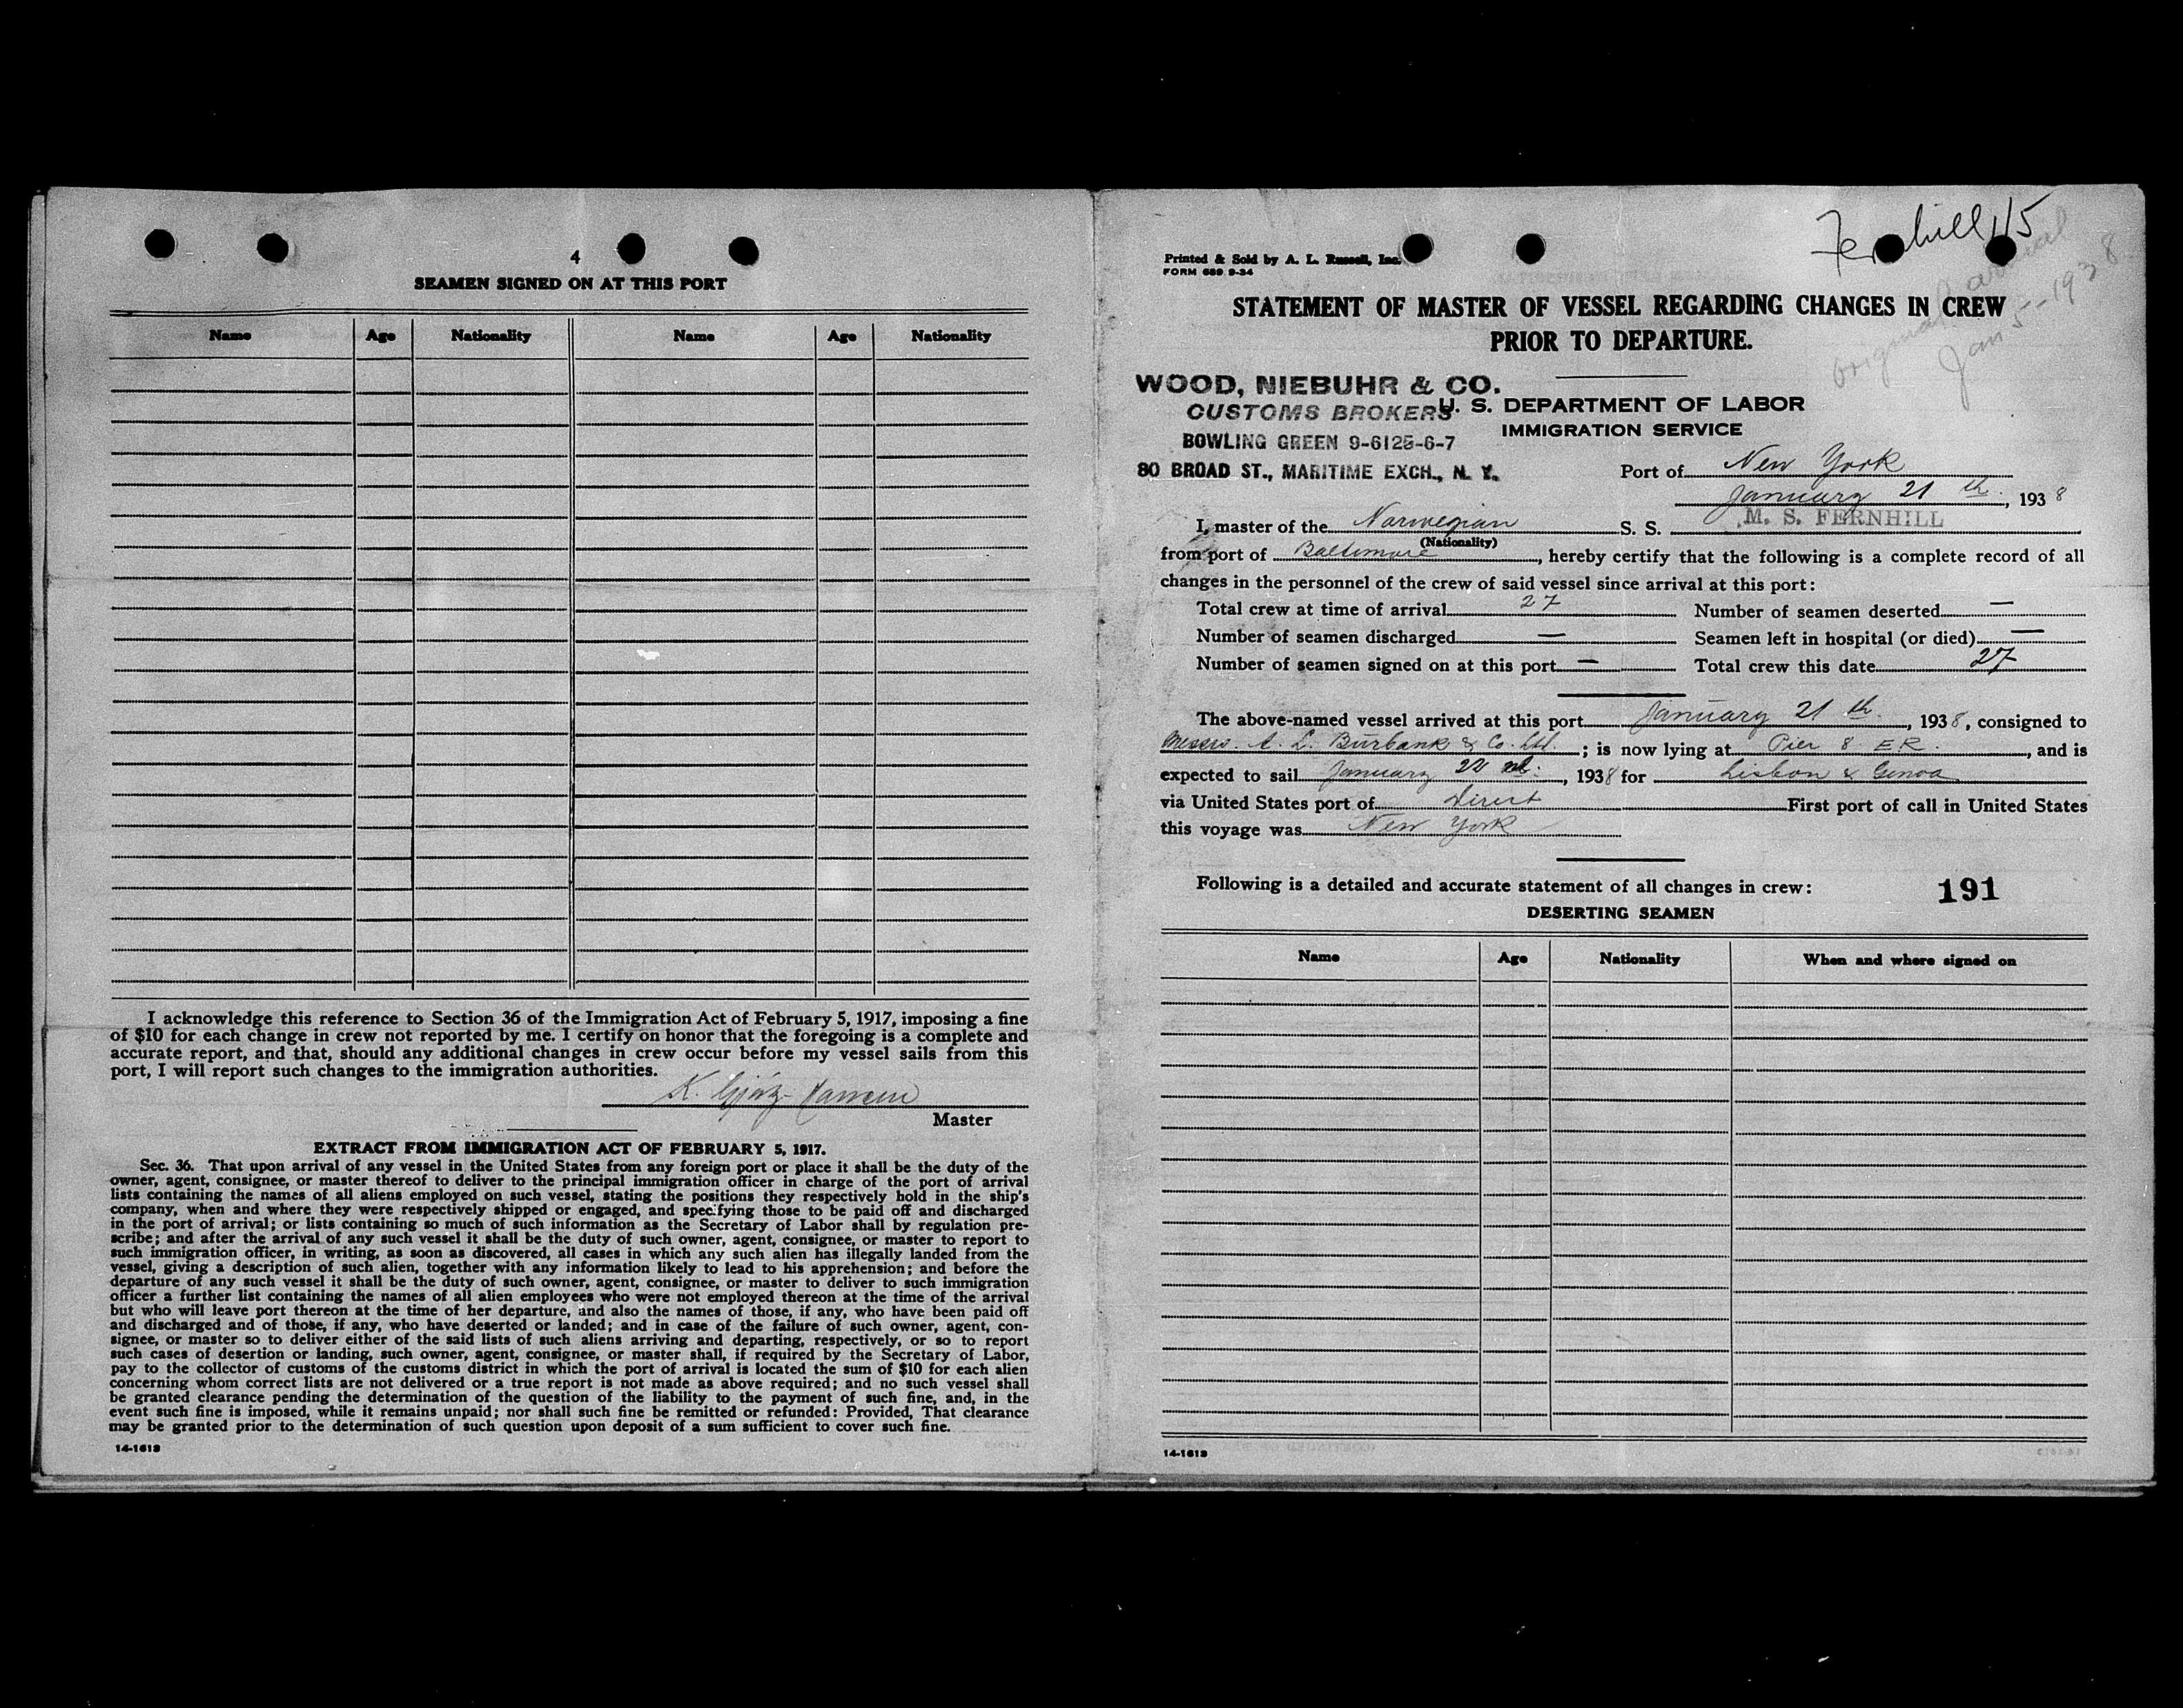 4
SEAMEN SIGNED ON AT THIS PORT
Name Age Nationality Name Age Nationality
I acknowledge this reference to Section 36 of the Immigration Act of February 5, 1917, imposing a fine
of $10 for each change in crew not reported by me. I certify on honor that the foregoing is a complete and
accurate report, and that, should any additional changes in crew occur before my vessel sails from this
port, I will report such changes to the immigration authorities.
K.
Master
EXTRACT FROM IMMIGRATION ACT OF FEBRUARY 5, 1917.
Sec. 36. That upon arrival of any vessel in the United States from any foreign port or place it shall be the duty of the
owner, agent, consignee, or master thereof to deliver to the principal immigration officer in charge of the port of arrival
lists containing the names of all aliens employed on such vessel, stating the positions they respectively hold in the ship's
company, when and where they were respectively shipped or engaged, and specifying those to be paid off and discharged
in the port of arrival; or lists containing so much of such information as the Secretary of Labor shall by regulation pre-
scribe; and after the arrival of any such vessel it shall be the duty of such owner, agent, consignee, or master to report to
such immigration officer, in writing, as soon as discovered, all cases in which any such alien has illegally landed from the
vessel, giving a description of such alien, together with any information likely to lead to his apprehension; and before the
departure of any such vessel it shall be the duty of such owner, agent, consignee, or master to deliver to such immigration
officer a further list containing the names of all alien employees who were not employed thereon at the time of the arrival
but who will leave port thereon at the time of her departure, and also the names of those, if any, who have been paid off
and discharged and of those, if any, who have deserted or landed; and in case of the failure of such owner, agent, con-
signee, or master so to deliver either of the said lists of such aliens arriving and departing, respectively, or so to report
such cases of desertion or landing, such owner, agent, consignee, or master shall, if required by the Secretary of Labor,
pay to the collector of customs of the customs district in which the port of arrival is located the sum of $10 for each alien
concerning whom correct lists are not delivered or a true report is not made as above required; and no such vessel shall
be granted clearance pending the determination of the question of the liability to the payment of such fine, and, in the
event such fine is imposed, while it remains unpaid; nor shall such fine be remitted or refunded: Provided, That clearance
may be granted prior to the determination of such question upon deposit of a sum sufficient to cover such fine.
14-1613
Fernhill 1/5
original arrival
Jan 5-1938
Printed & Sold by A. L. Russell, Inc.
FORM 689 9-34
STATEMENT OF MASTER OF VESSEL REGARDING CHANGES IN CREW
PRIOR TO DEPARTURE.
WOOD, NIEBUHR & CO.
CUSTOMS BROKERS
BOWLING GREEN 9-6125-6-7
80 BROAD ST., MARITIME EXCH., N. Y.
U. S. DEPARTMENT OF LABOR
IMMIGRATION SERVICE
Port of New York
January 21 th., 1938
I, master of the Norwegian S. S. M. S. FERNHILL
(Nationality)
from port of Baltimore, hereby certify that the following is a complete record of all
changes in the personnel of the crew of said vessel since arrival at this port:
Total crew at time of arrival 27 Number of seamen deserted —
Number of seamen discharged — Seamen left in hospital (or died) —
Number of seamen signed on at this port — Total crew this date 27
The above-named vessel arrived at this port January 21 th., 1938, consigned to
Messrs. A. L. Burbank & Co. Ltd. ; is now lying at Pier 8 E R., and is
expected to sail January 22 nd., 1938 for Lisbon & Genoa
via United States port of Direct First port of call in United States
this voyage was New York
Following is a detailed and accurate statement of all changes in crew: 191
DESERTING SEAMEN
Name Age Nationality When and where signed on
14-1613